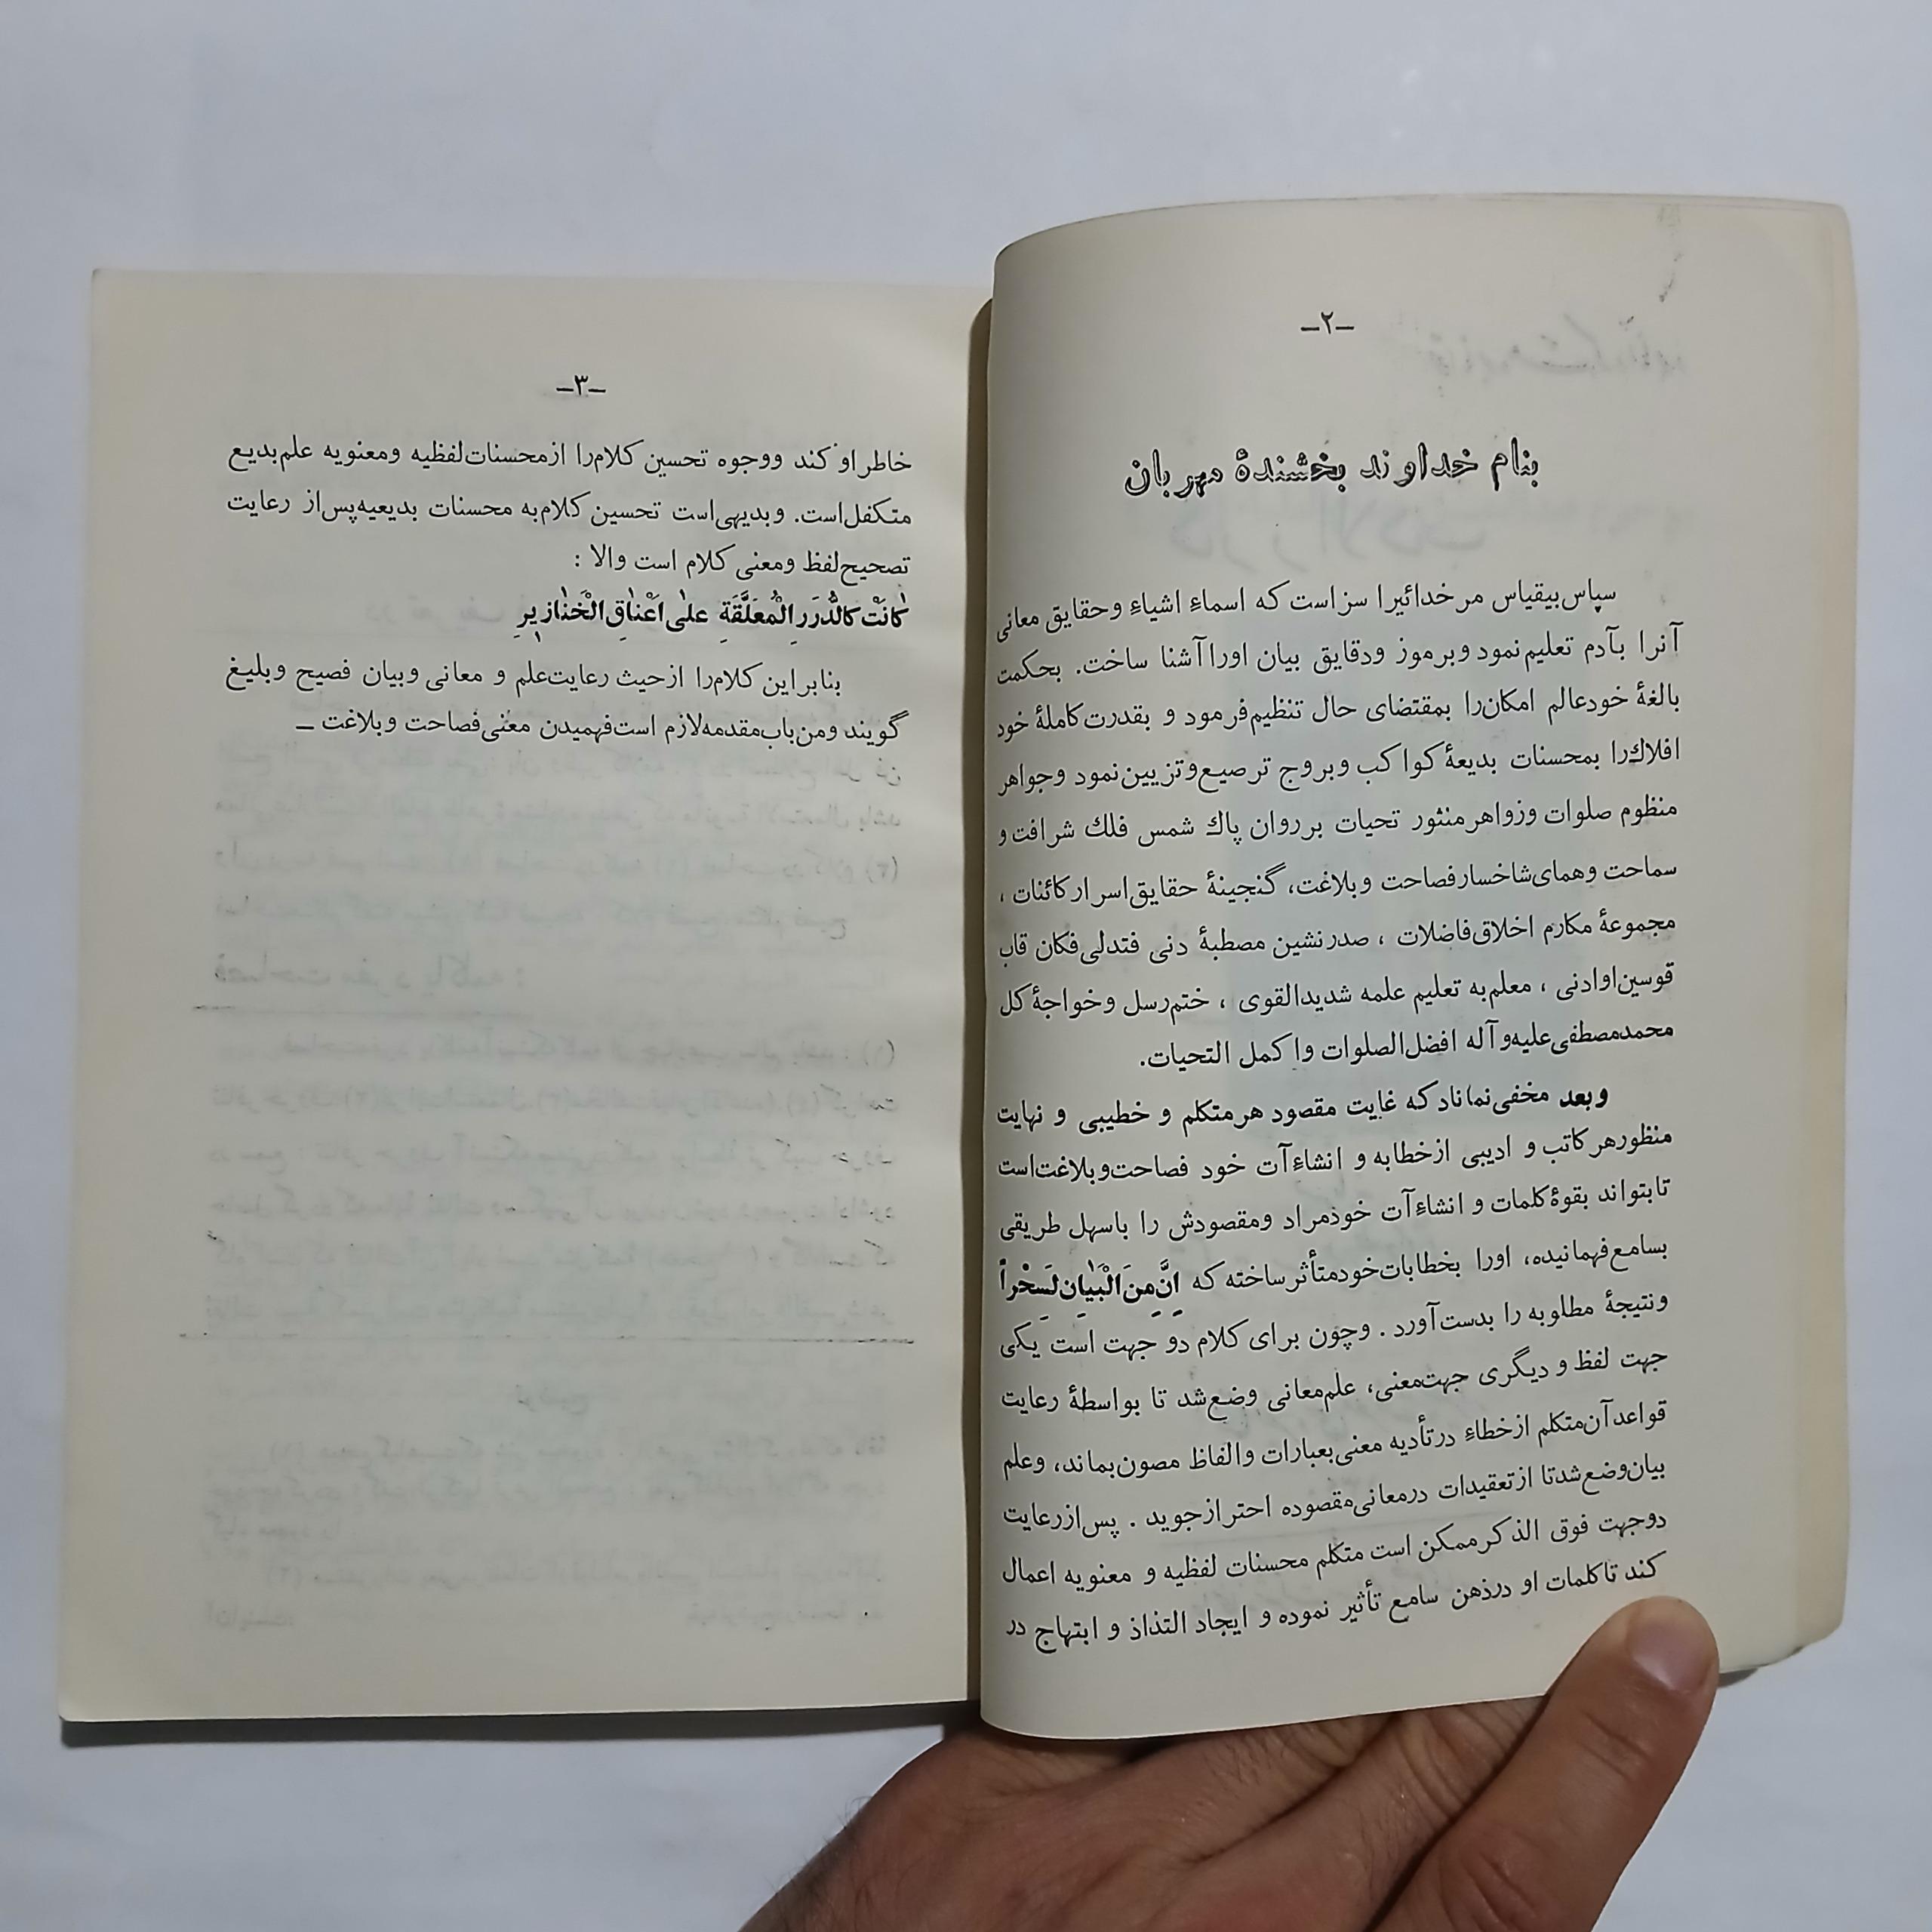 ـ۲ـ
بنام خداوند بخشندهٔ مهربان
سپاس بیقیاس مر خدائیرا سزاست که اسماء اشیاء وحقایق معانی
آنرا بآدم تعلیم نمود وبرموز ودقایق بیان اورا آشنا ساخت. بحکمت
بالغهٔ خودعالم امکان‌را بمقتضای حال تنظیم‌فرمود و بقدرت‌کاملهٔ خود
افلاك‌را بمحسنات بدیعهٔ کواکب وبروج ترصیع‌وتزیین‌نمود وجواهر
منظوم صلوات وزواهر منثور تحیات برروان پاك شمس فلك شرافت و
سماحت وهمای‌شاخسارفصاحت وبلاغت، گنجینهٔ حقایق‌اسرارکائنات ،
مجموعهٔ مکارم اخلاق‌فاضلات ، صدرنشین مصطبهٔ دنی فتدلی‌فکان قاب
قوسین‌اوادنی ، معلم‌به تعلیم علمه شدیدالقوی ، ختم‌رسل وخواجهٔ کل
محمدمصطفی‌علیه‌وآله افضل‌الصلوات واکمل التحیات.
وبعد مخفی‌نماناد که غایت مقصود هرمتکلم و خطیبی و نهایت
منظورهرکاتب و ادیبی ازخطابه و انشاءآت خود فصاحت‌وبلاغت‌است
تابتواند بقوهٔ‌کلمات و انشاءآت خودمراد ومقصودش را باسهل طریقی
بسامع‌فهمانیده، اورا بخطابات‌خودمتأثرساخته که اِنَّ‌مِنَ‌الْبَیٰانِ‌لَسِحْراً
ونتیجهٔ مطلوبه را بدست‌آورد . وچون برای کلام دو جهت است یکی
جهت لفظ و دیگری جهت‌معنی، علم‌معانی وضع‌شد تا بواسطهٔ رعایت
قواعدآن‌متکلم ازخطاء درتأدیه معنی‌بعبارات والفاظ مصون‌بماند، وعلم
بیان‌وضع‌شدتا ازتعقیدات درمعانی‌مقصوده احترازجوید . پس‌ازرعایت
دوجهت فوق الذکرممکن است متکلم محسنات لفظیه و معنویه اعمال
کند تاکلمات او درذهن سامع تأثیر نموده و ایجاد التذاذ و ابتهاج در
ـ۳ـ
خاطراوکند ووجوه تحسین کلام‌را ازمحسنات‌لفظیه ومعنویه علم‌بدیع
متکفل‌است. وبدیهی‌است تحسین کلام‌به محسنات بدیعیه‌پس‌از رعایت
تصحیح‌لفظ ومعنی کلام است والا :
کٰانَتْ کَالدُّرَرِ الْمُعَلَّقَةِ عَلٰی اَعْنٰاقِ الْخَنٰازیرِ
بنابراین کلام‌را ازحیث رعایت‌علم و معانی وبیان فصیح وبلیغ
گویند ومن‌باب‌مقدمه‌لازم است‌فهمیدن معنی‌فصاحت وبلاغت ـ